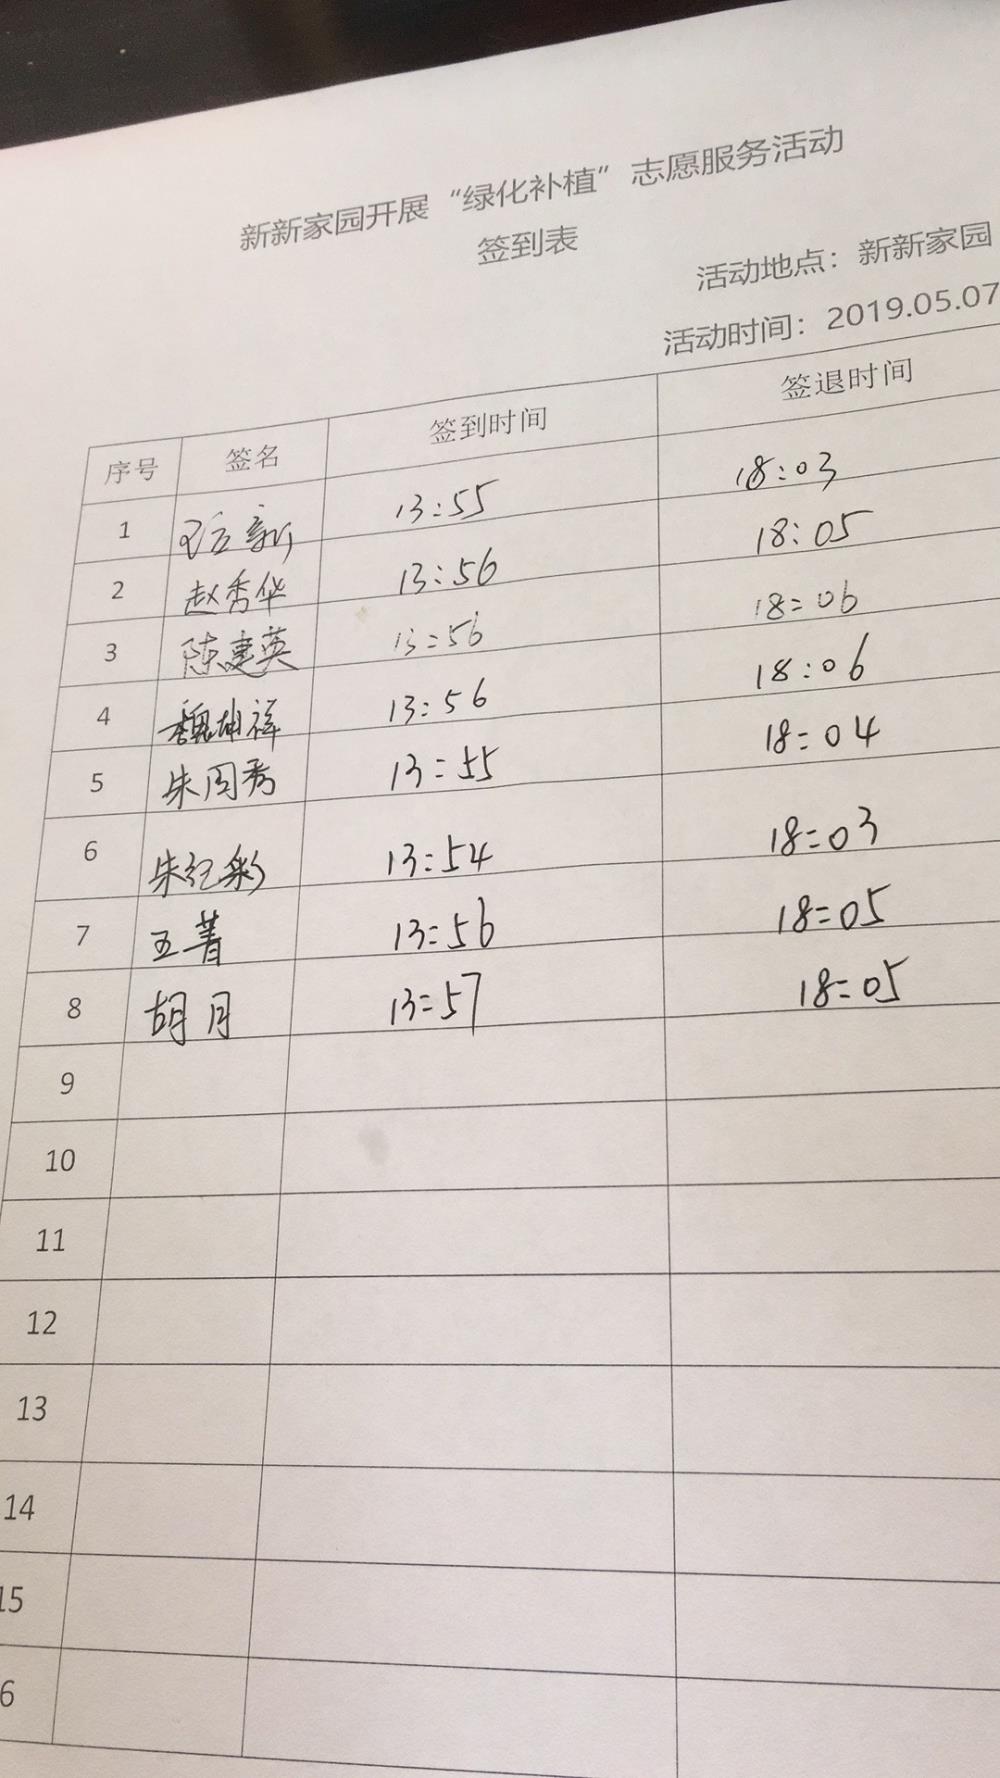 新新家园开展“绿化补植”志愿服务活动
签到表
活动地点：新新家园
活动时间：2019.05.07
序号 签名 签到时间 签退时间
1 13:55 18:03
2 赵秀华 13:56 18:05
3 陈建英 13:56 18:06
4 魏坤祥 13:56 18:06
5 朱周秀 13:55 18:04
6 朱纪彩 13:54 18:03
7 王菁 13:56 18:05
8 胡月 13:57 18:05
9
10
11
12
13
14
15
6